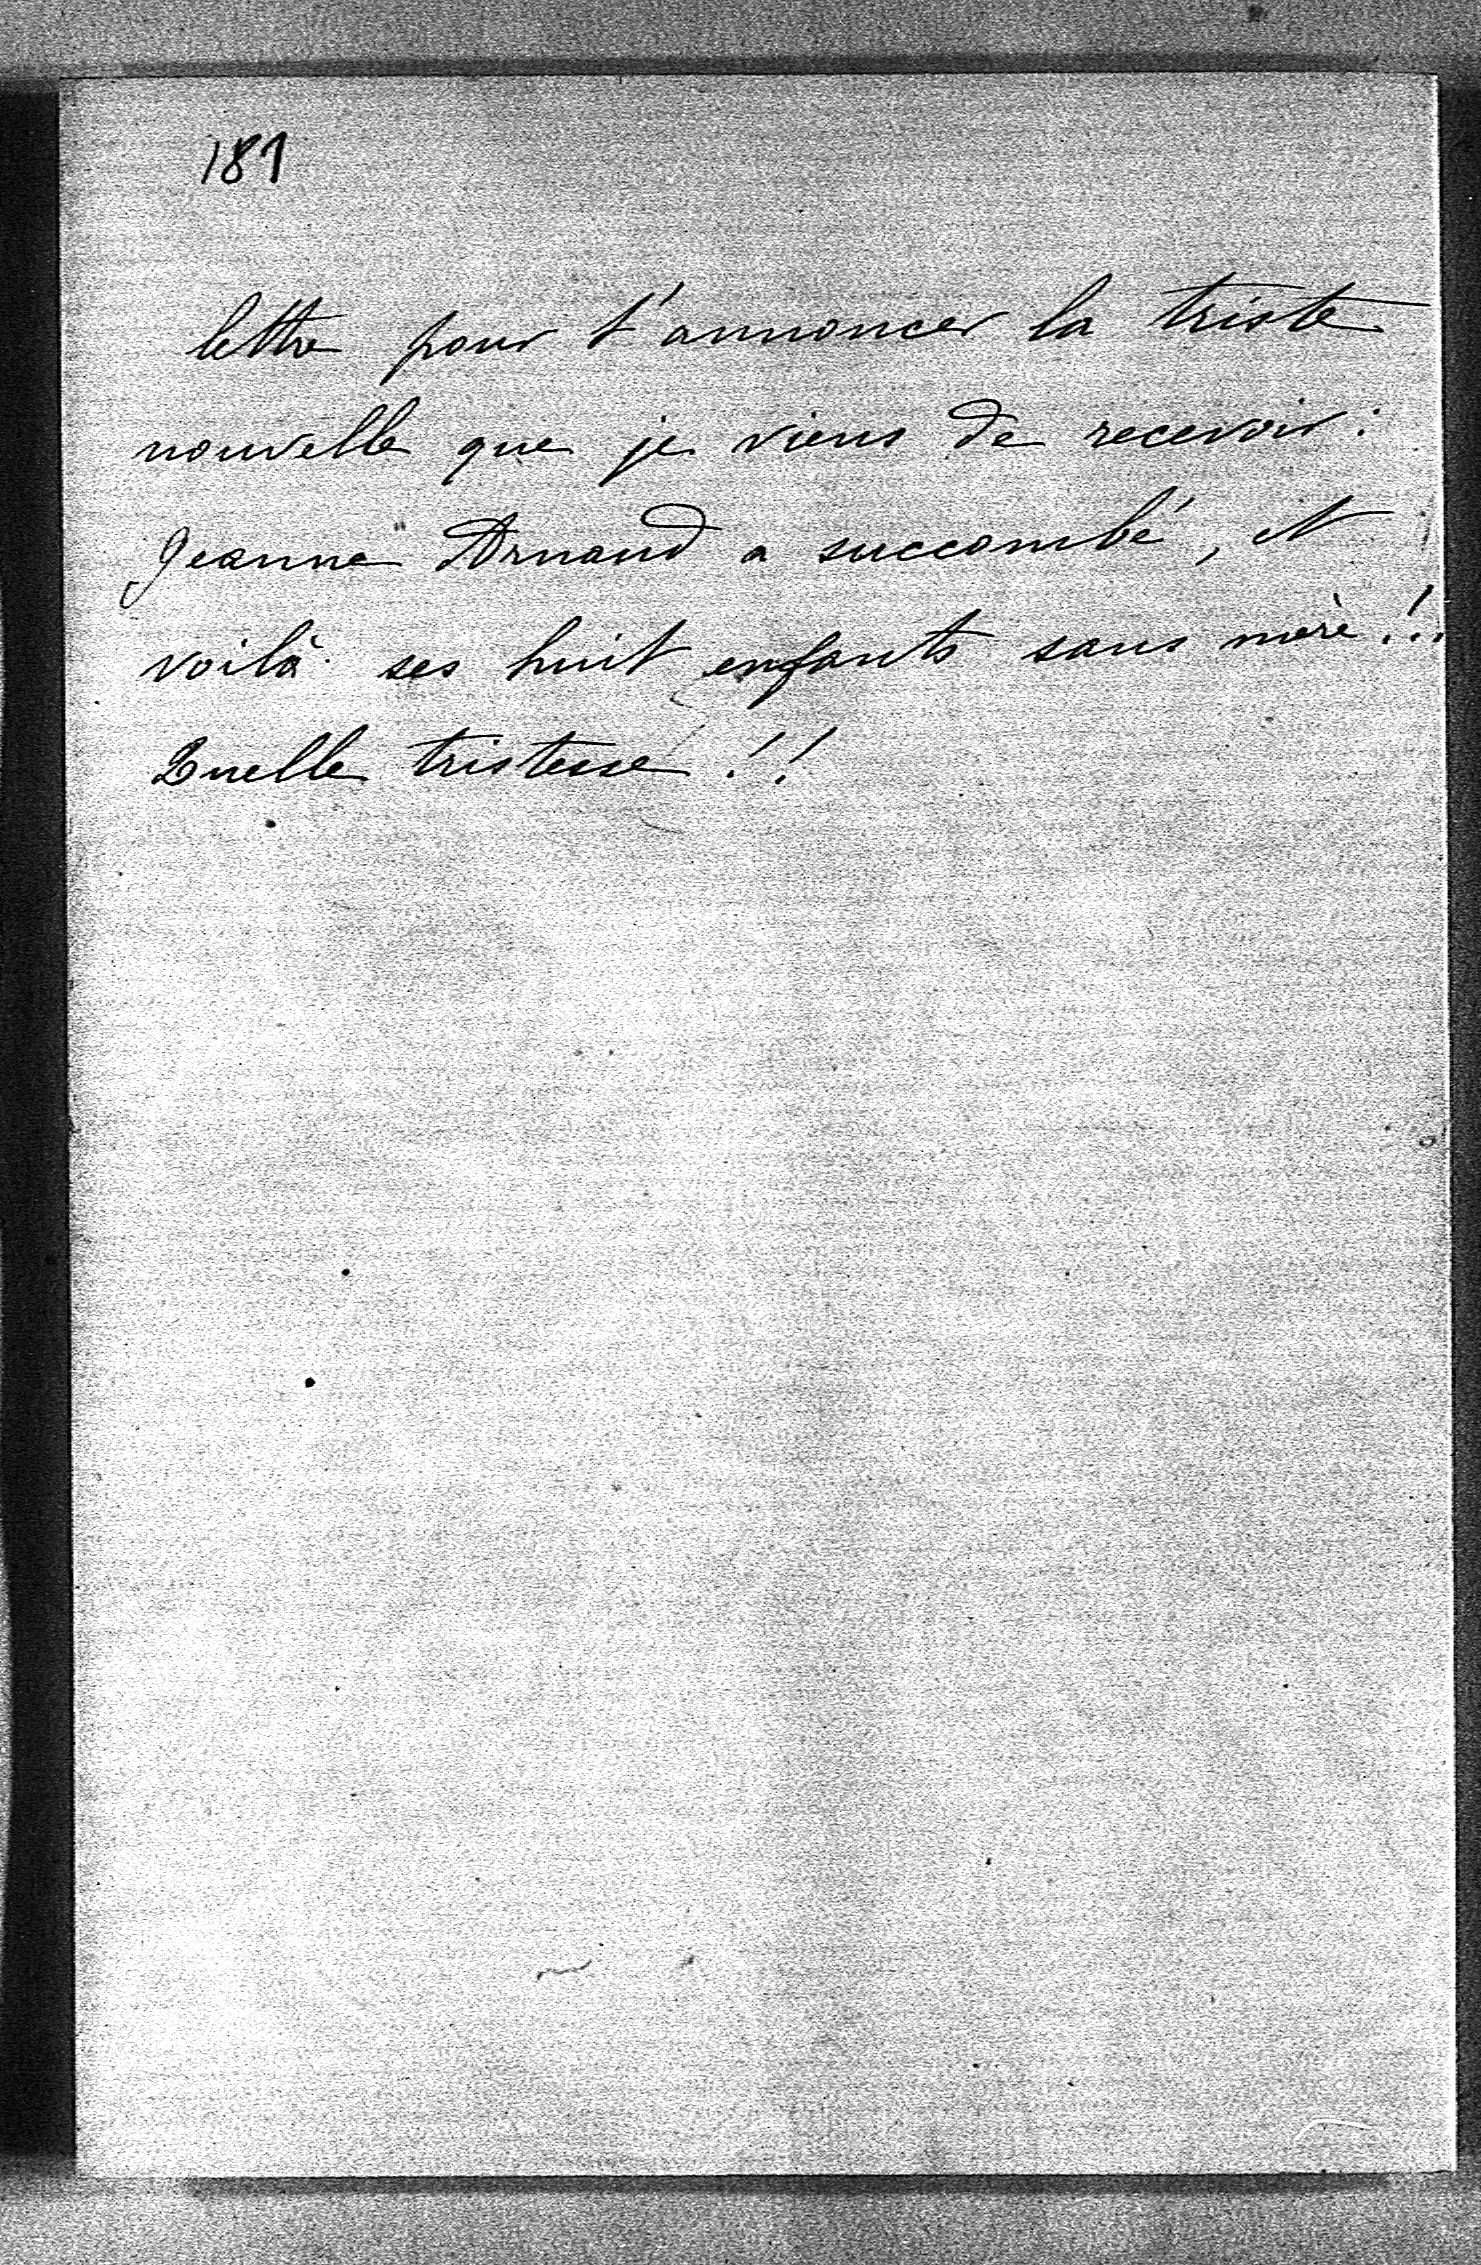 181
lettre pour t'annoncer la triste
nouvelle que je viens de recevoir :
Jeanne Arnaud a succombé, et
voilà ses huit enfants sans mère !..
Quelle tristesse !!